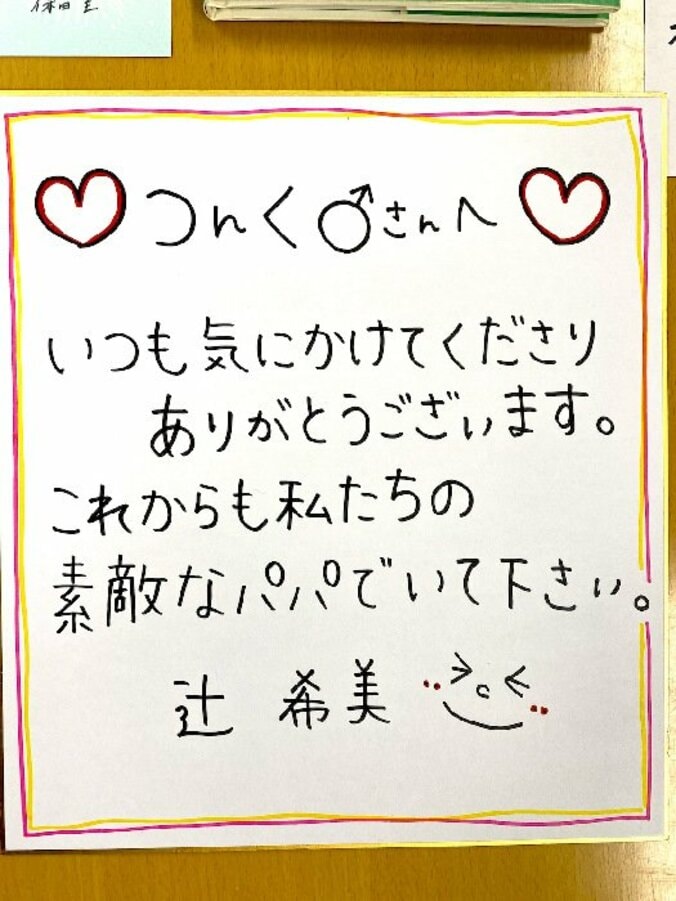 つんく♂さんへ
いつも気にかけてくださり
ありがとうございます。
これからも私たちの
素敵なパパでいて下さい。
辻 希美